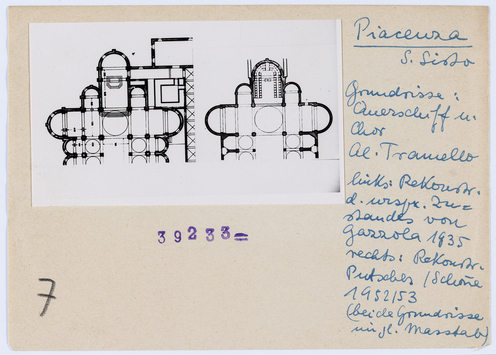 Piacenza
S. Sisto
Grundrisse:
Querschiff u.
Chor
Al. Tramello
links: Rekonstr.
d. urspr. Zu=
standes von
Gazzola 1935
rechts: Rekonstr.
Putscher / Schöne
1952/53
(beide Grundrisse
im gl. Masstab)
39233=
7